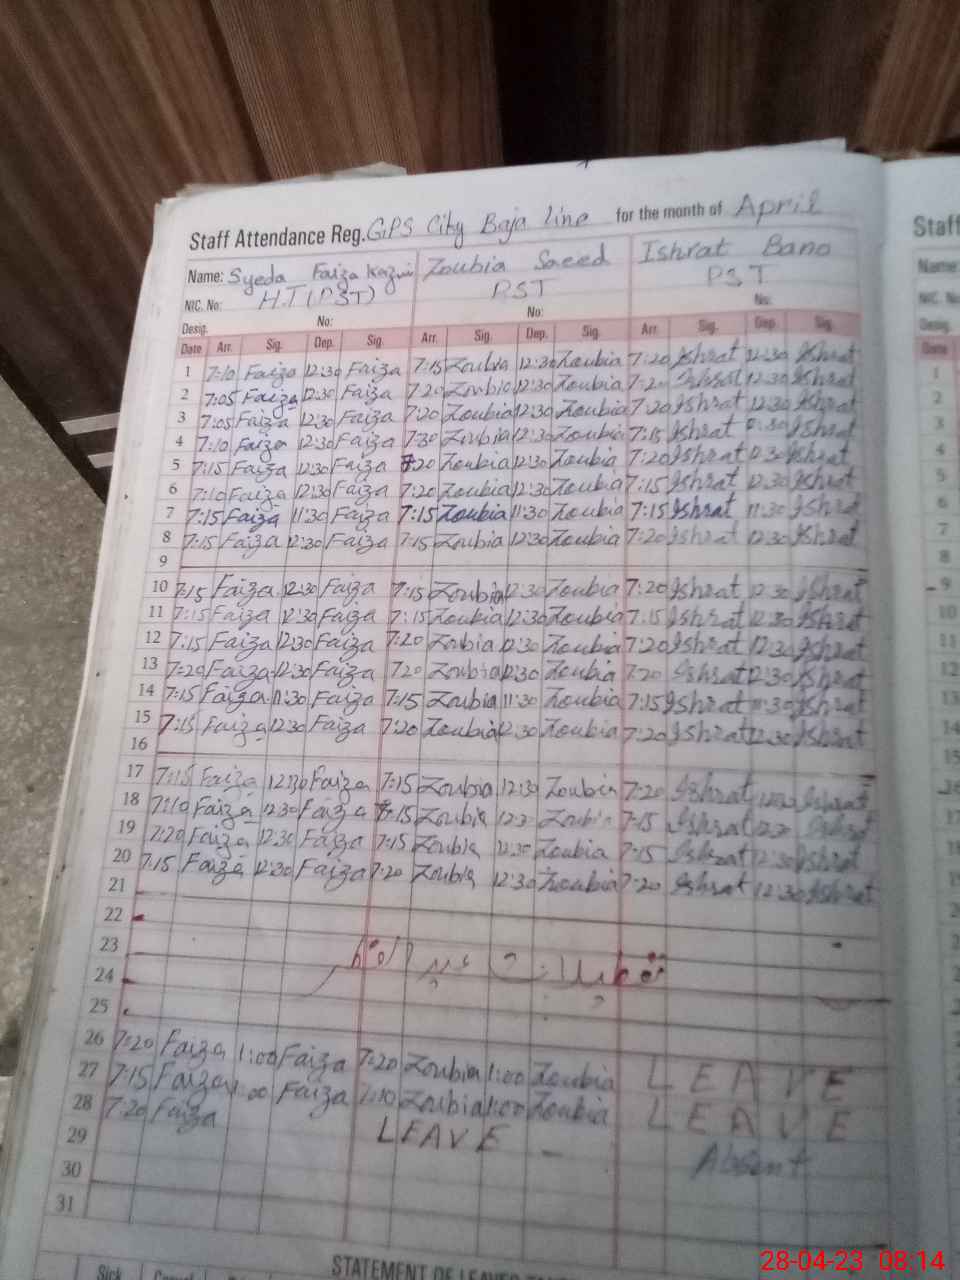 Staff Attendance Reg. GPS City Baja line for the month of April
Name: Syeda Faiza Kazmi Zoubia Saeed Ishrat Bano
NIC. No: H.T (PST) PST PST
Desig. No: No: No:
Date Arr. Sig. Dep. Sig. Arr. Sig. Dep. Sig. Arr. Sig. Dep. Sig.
1 7:10 Faiza 12:30 Faiza 7:15 Zoubia 12:30 Zoubia 7:20 Ishrat 12:30 Ishrat
2 7:05 Faiza 12:30 Faiza 7:20 Zoubia 12:30 Zoubia 7:20 Ishrat 12:30 Ishrat
3 7:05 Faiza 12:30 Faiza 7:20 Zoubia 12:30 Zoubia 7:20 Ishrat 12:30 Ishrat
4 7:10 Faiza 12:30 Faiza 7:30 Zoubia 12:30 Zoubia 7:15 Ishrat 12:30 Ishrat
5 7:15 Faiza 12:30 Faiza 7:20 Zoubia 12:30 Zoubia 7:20 Ishrat 12:30 Ishrat
6 7:10 Faiza 12:30 Faiza 7:20 Zoubia 12:30 Zoubia 7:15 Ishrat 12:30 Ishrat
7 7:15 Faiza 11:30 Faiza 7:15 Zoubia 11:30 Zoubia 7:15 Ishrat 11:30 Ishrat
8 7:15 Faiza 12:30 Faiza 7:15 Zoubia 12:30 Zoubia 7:20 Ishrat 12:30 Ishrat
9
10 7:15 Faiza 12:30 Faiza 7:15 Zoubia 12:30 Zoubia 7:20 Ishrat 12:30 Ishrat
11 7:15 Faiza 12:30 Faiza 7:15 Zoubia 12:30 Zoubia 7:15 Ishrat 12:30 Ishrat
12 7:15 Faiza 12:30 Faiza 7:20 Zoubia 12:30 Zoubia 7:20 Ishrat 12:30 Ishrat
13 7:20 Faiza 12:30 Faiza 7:20 Zoubia 12:30 Zoubia 7:20 Ishrat 12:30 Ishrat
14 7:15 Faiza 11:30 Faiza 7:15 Zoubia 11:30 Zoubia 7:15 Ishrat 11:30 Ishrat
15 7:15 Faiza 12:30 Faiza 7:20 Zoubia 12:30 Zoubia 7:20 Ishrat 12:30 Ishrat
16
17 7:15 Faiza 12:30 Faiza 7:15 Zoubia 12:30 Zoubia 7:20 Ishrat 12:30 Ishrat
18 7:10 Faiza 12:30 Faiza 7:15 Zoubia 12:30 Zoubia 7:15 Ishrat 12:30 Ishrat
19 7:20 Faiza 12:30 Faiza 7:15 Zoubia 12:30 Zoubia 7:15 Ishrat 12:30 Ishrat
20 7:15 Faiza 12:30 Faiza 7:20 Zoubia 12:30 Zoubia 7:20 Ishrat 12:30 Ishrat
21
22
23
تعطیلات عید الفطر
24
25
26 7:20 Faiza 1:00 Faiza 7:20 Zoubia 1:00 Zoubia LEAVE
27 7:15 Faiza 1:00 Faiza 7:10 Zoubia 1:00 Zoubia LEAVE
28 7:20 Faiza LEAVE Absent
29
30
31
Sick Casual
STATEMENT OF LEAVES
Staff
Name:
NIC. No:
Desig.
Date
1
2
3
4
5
6
7
8
9
10
11
12
13
14
15
28-04-23 08:14